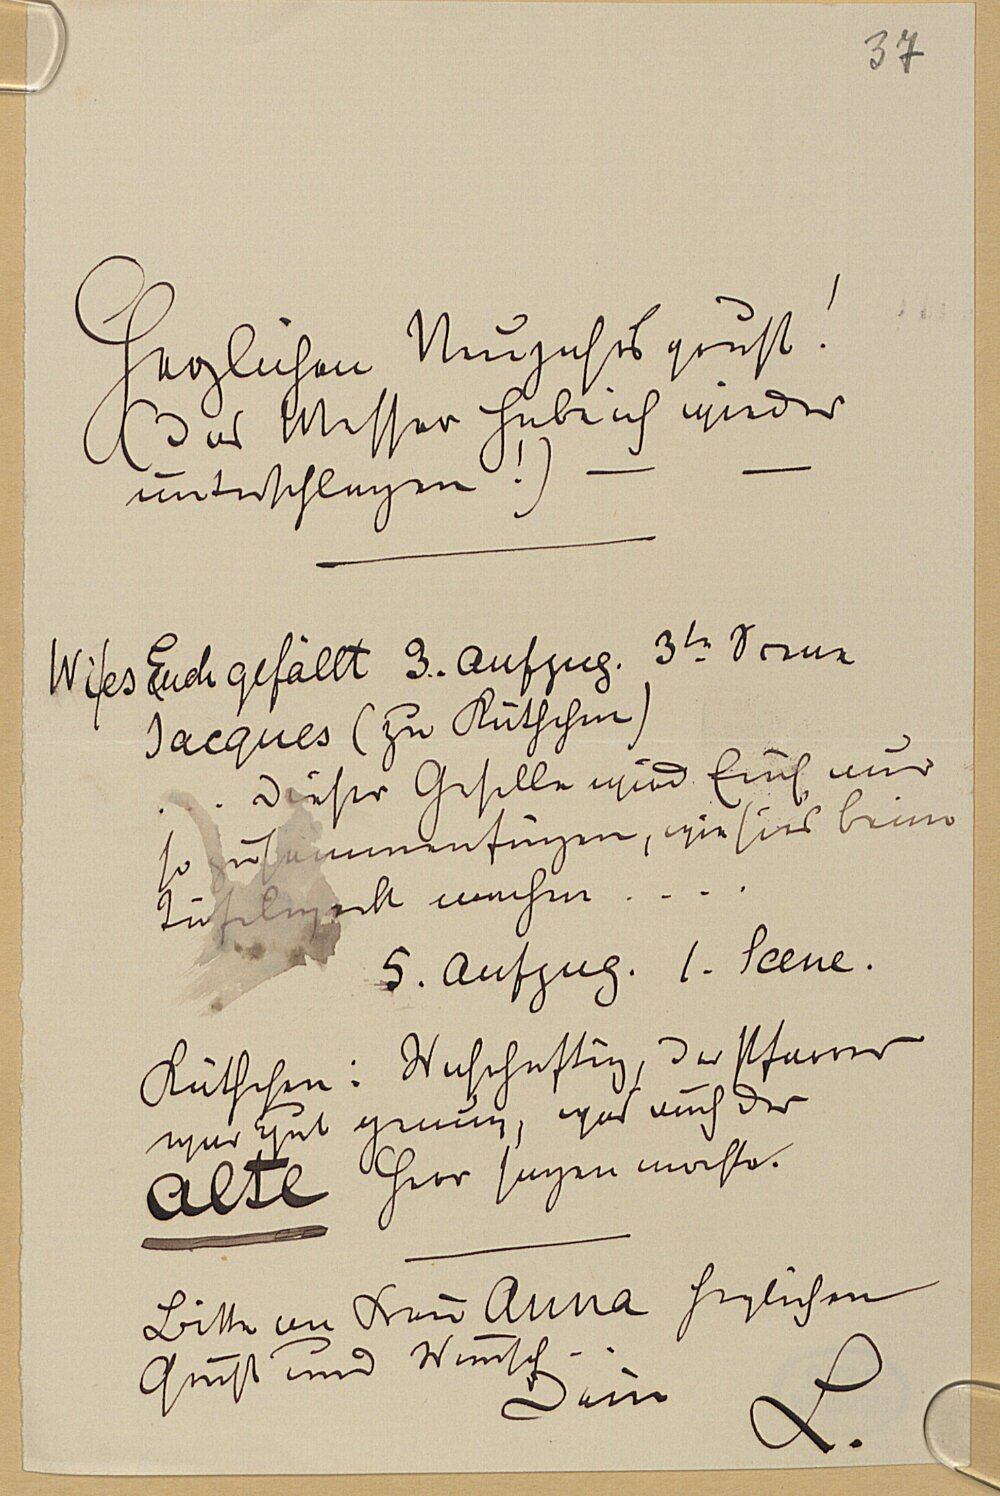 37
Herzlichen Neujahrsgruß!
(Das Messer habe ich wieder
unterschlagen!) — —
Wie es Euch gefällt 3. Aufzug. 3te Scene
Jacques (zu Käthchen)
. . . Dieser Geselle wird Euch nur
so zusammenfügen, wie sie's beim
Täfelwerk machen . . . .
5. Aufzug. 1. Scene.
Käthchen: Wahrhaftig, der Pfarrer
war gut genug, was auch der
alte Herr sagen mochte.
Bitte an Frau Anna herzlichen
Gruß und Wunsch . .
Dein L.